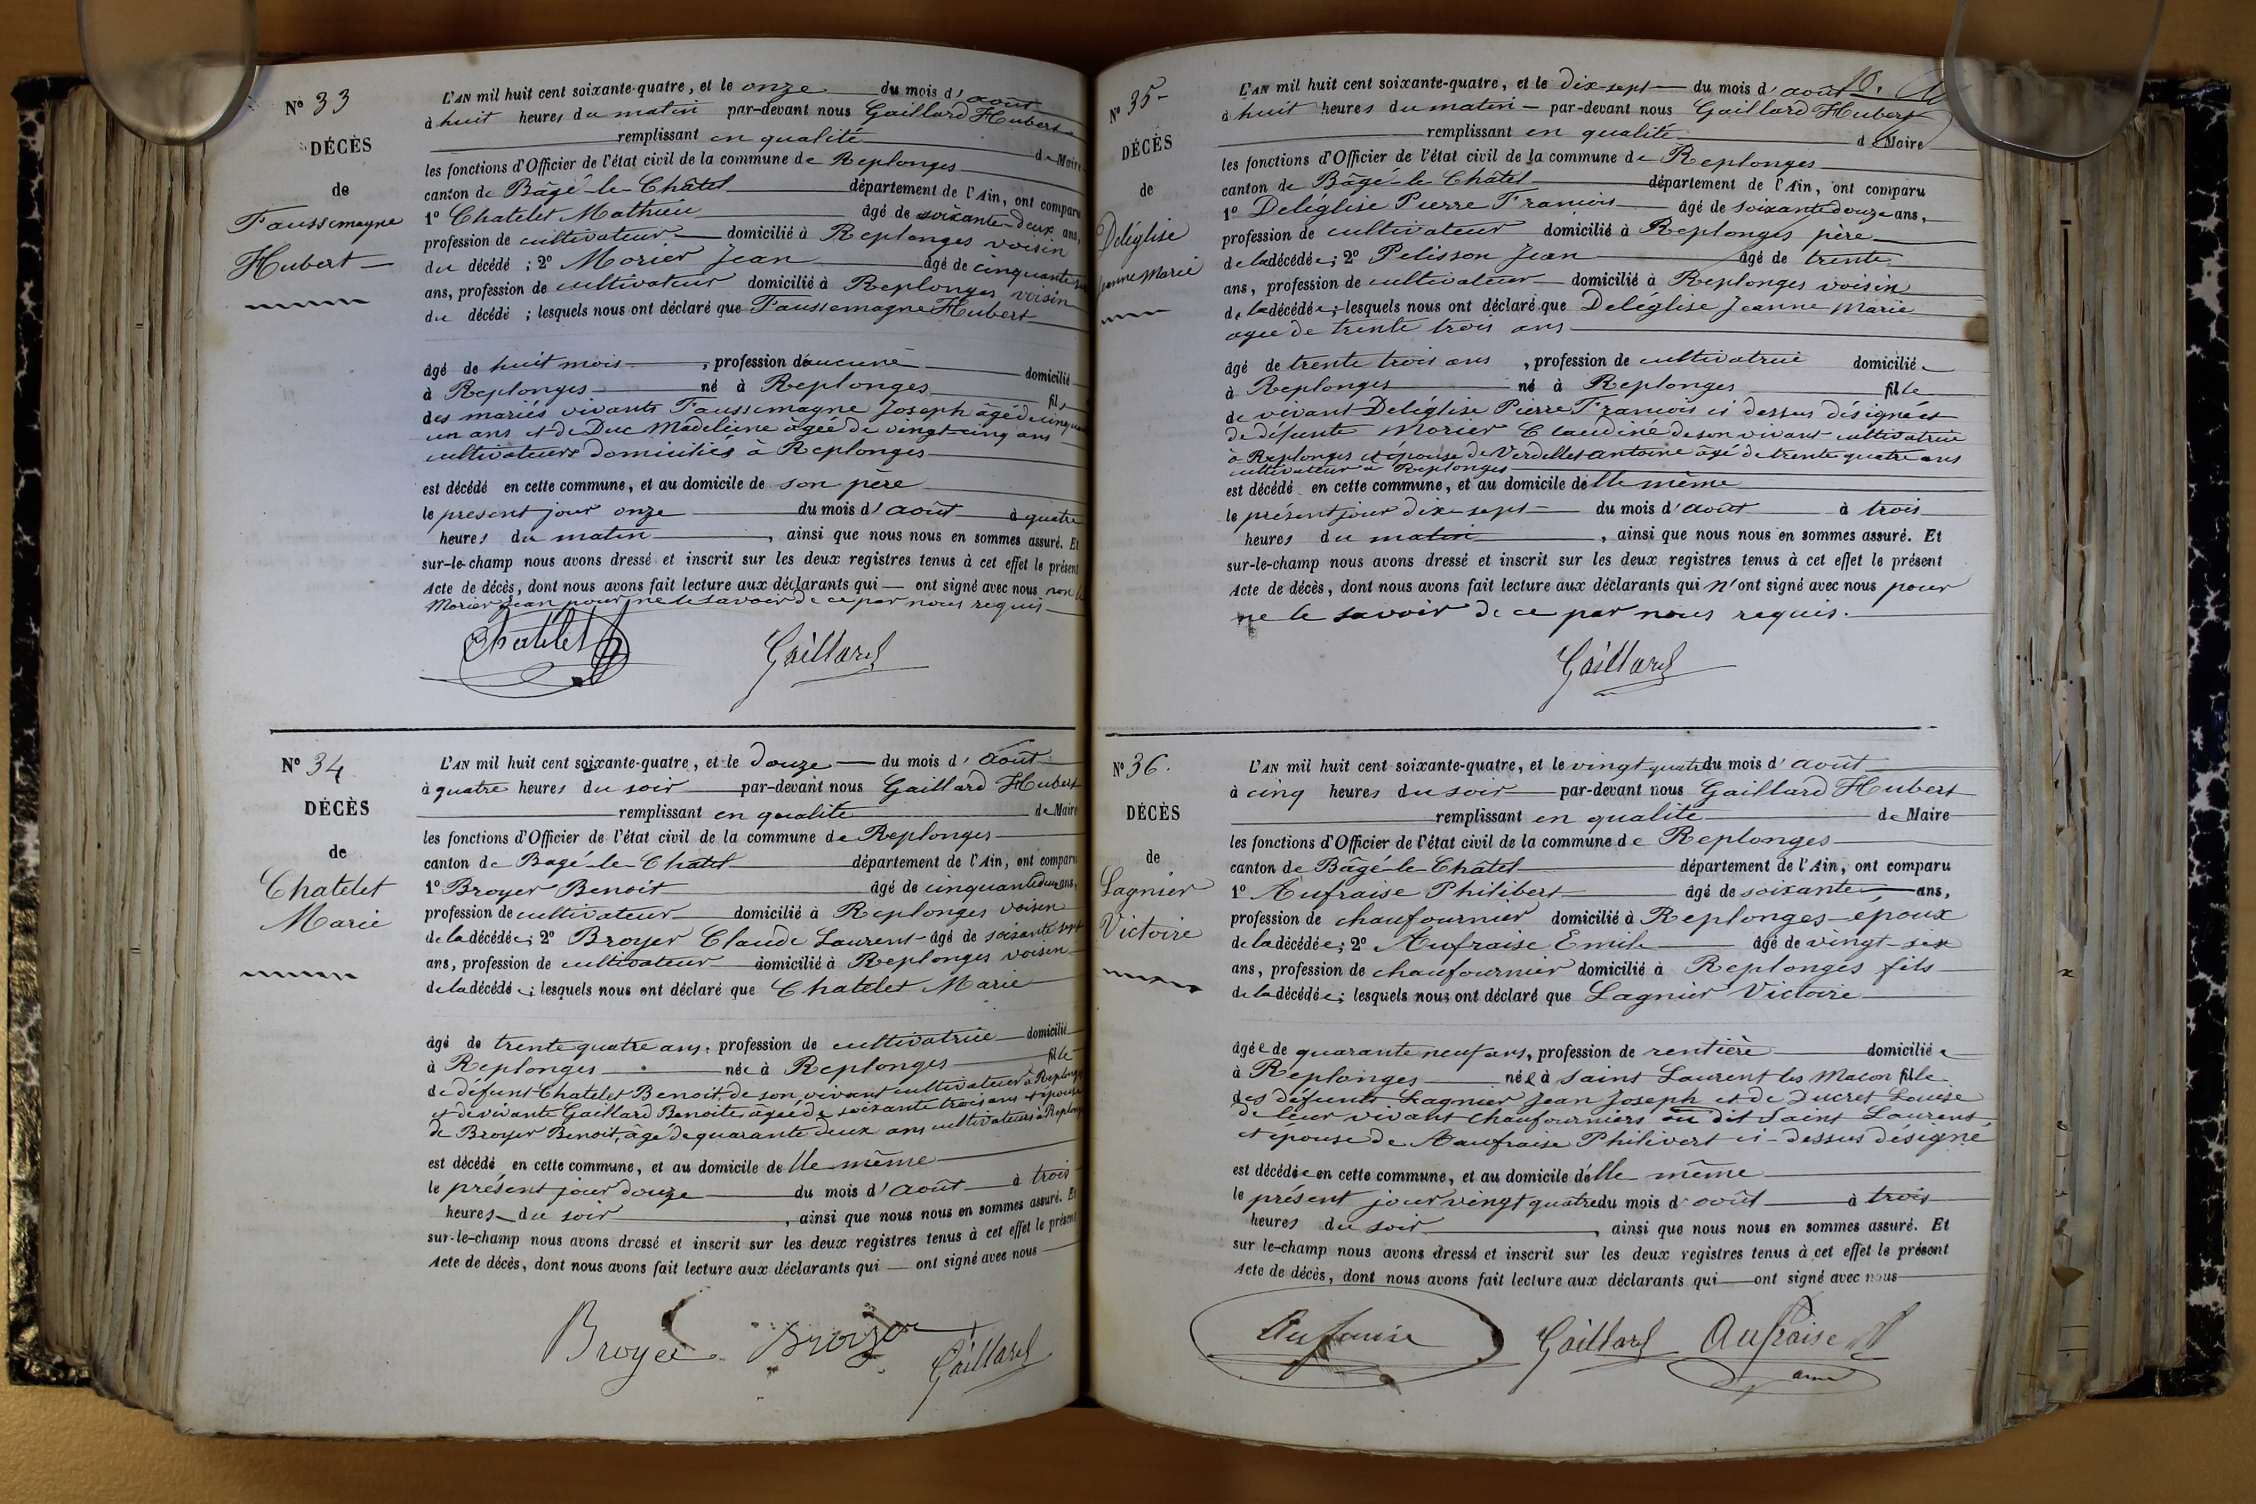 Nº 33
DÉCÈS
de
Faussemagne
Hubert
L'AN mil huit cent soixante-quatre, et le onze du mois d'août
à huit heures du matin par-devant nous Gaillard Hubert
remplissant en qualité de Maire
les fonctions d'Officier de l'état civil de la commune de Replonges
canton de Bâgé-le-Châtel département de l'Ain, ont comparu
1º Chatelet Mathieu âgé de soixante-deux ans,
profession de cultivateur domicilié à Replonges voisin
du décédé ; 2º Morier Jean âgé de cinquante
ans, profession de cultivateur domicilié à Replonges voisin
du décédé ; lesquels nous ont déclaré que Faussemagne Hubert
âgé de huit mois, profession d'aucune domicilié
à Replonges né à Replonges fils
des mariés vivants Faussemagne Joseph âgé de cinquante
un ans et de Duc Madeleine agée de vingt-cinq ans
cultivateurs domiciliés à Replonges
est décédé en cette commune, et au domicile de son père
le présent jour onze du mois d'août à quatre
heures du matin, ainsi que nous nous en sommes assuré. Et
sur-le-champ nous avons dressé et inscrit sur les deux registres tenus à cet effet le présent
Acte de décès, dont nous avons fait lecture aux déclarants qui ont signé avec nous non le
Morier Jean pour ne le savoir de ce par nous requis
Chatelet Gaillard
Nº 34
DÉCÈS
de
Chatelet
Marie
L'AN mil huit cent soixante-quatre, et le douze du mois d'Août
à quatre heures du soir par-devant nous Gaillard Hubert
remplissant en qualité de Maire
les fonctions d'Officier de l'état civil de la commune de Replonges
canton de Bagé-le-Chatel département de l'Ain, ont comparu
1º Broyer Benoit âgé de cinquante deux ans,
profession de cultivateur domicilié à Replonges voisin
de la décédée ; 2º Broyer Claude Laurent âgé de soixante sept
ans, profession de cultivateur domicilié à Replonges voisin
de la décédée ; lesquels nous ont déclaré que Chatelet Marie
âgé de trente quatre ans, profession de cultivatrice domicilié
à Replonges née à Replonges fille
de défunt Chatelet Benoit, de son vivant cultivateur à Replonges
et de vivante Gaillard Benoite, âgée de soixante trois ans et épouse
de Broyer Benoit, âgé de quarante deux ans cultivateurs à Replonges
est décédé en cette commune, et au domicile de lle même
le présent jour douze du mois d'Août à trois
heures du soir, ainsi que nous nous en sommes assuré. Et
sur-le-champ nous avons dressé et inscrit sur les deux registres tenus à cet effet le présent
Acte de décès, dont nous avons fait lecture aux déclarants qui ont signé avec nous
Broyer Broyer Gaillard
Nº 35
DÉCÈS
de
Deléglise
Jeanne Marie
L'AN mil huit cent soixante-quatre, et le dix-sept du mois d'août
à huit heures du matin par-devant nous Gaillard Hubert
remplissant en qualité de Maire
les fonctions d'Officier de l'état civil de la commune de Replonges
canton de Bâgé-le-Châtel département de l'Ain, ont comparu
1º Deléglise Pierre Francois âgé de soixante douze ans,
profession de cultivateur domicilié à Replonges père
de la décédée ; 2º Pelisson Jean âgé de trente
ans, profession de cultivateur domicilié à Replonges voisin
de la décédée ; lesquels nous ont déclaré que Deléglise Jeanne Marie
agée de trente trois ans
âgé de trente trois ans, profession de cultivatrice domiciliée
à Replonges né à Replonges fille
de vivant Deléglise Pierre Francois ci dessus désigné et
de défunte Morier Claudine de son vivant cultivatrice
à Replonges et épouse de Verdellet Antoine âgé de trente quatre ans
cultivateur à Replonges
est décédé en cette commune, et au domicile de lle même
le présent jour dix-sept du mois d'août à trois
heures du matin, ainsi que nous nous en sommes assuré. Et
sur-le-champ nous avons dressé et inscrit sur les deux registres tenus à cet effet le présent
Acte de décès, dont nous avons fait lecture aux déclarants qui n'ont signé avec nous pour
ne le savoir de ce par nous requis.
Gaillard
Nº 36.
DÉCÈS
de
Lagnier
Victoire
L'AN mil huit cent soixante-quatre, et le vingt quatre du mois d'août
à cinq heures du soir par-devant nous Gaillard Hubert
remplissant en qualité de Maire
les fonctions d'Officier de l'état civil de la commune de Replonges
canton de Bâgé-le-Châtel département de l'Ain, ont comparu
1º Aufraise Philibert âgé de soixante ans,
profession de chaufournier domicilié à Replonges époux
de la décédée ; 2º Aufraise Emile âgé de vingt-six
ans, profession de chaufournier domicilié à Replonges fils
de la décédée ; lesquels nous ont déclaré que Lagnier Victoire
âgée de quarante neuf ans, profession de rentière domiciliée
à Replonges née à Saint Laurent les Macon fille
des défunts Lagnier Jean Joseph et de Ducret Louise
de leur vivant chaufourniers au dit Saint Laurent,
et épouse de Aaufraise Philivert ci-dessus désigné
est décédée en cette commune, et au domicile d'elle même
le présent jour vingt quatre du mois d'août à trois
heures du soir, ainsi que nous nous en sommes assuré. Et
sur le-champ nous avons dressé et inscrit sur les deux registres tenus à cet effet le présent
Acte de décès, dont nous avons fait lecture aux déclarants qui ont signé avec nous
Aufraise Gaillard Aufraise